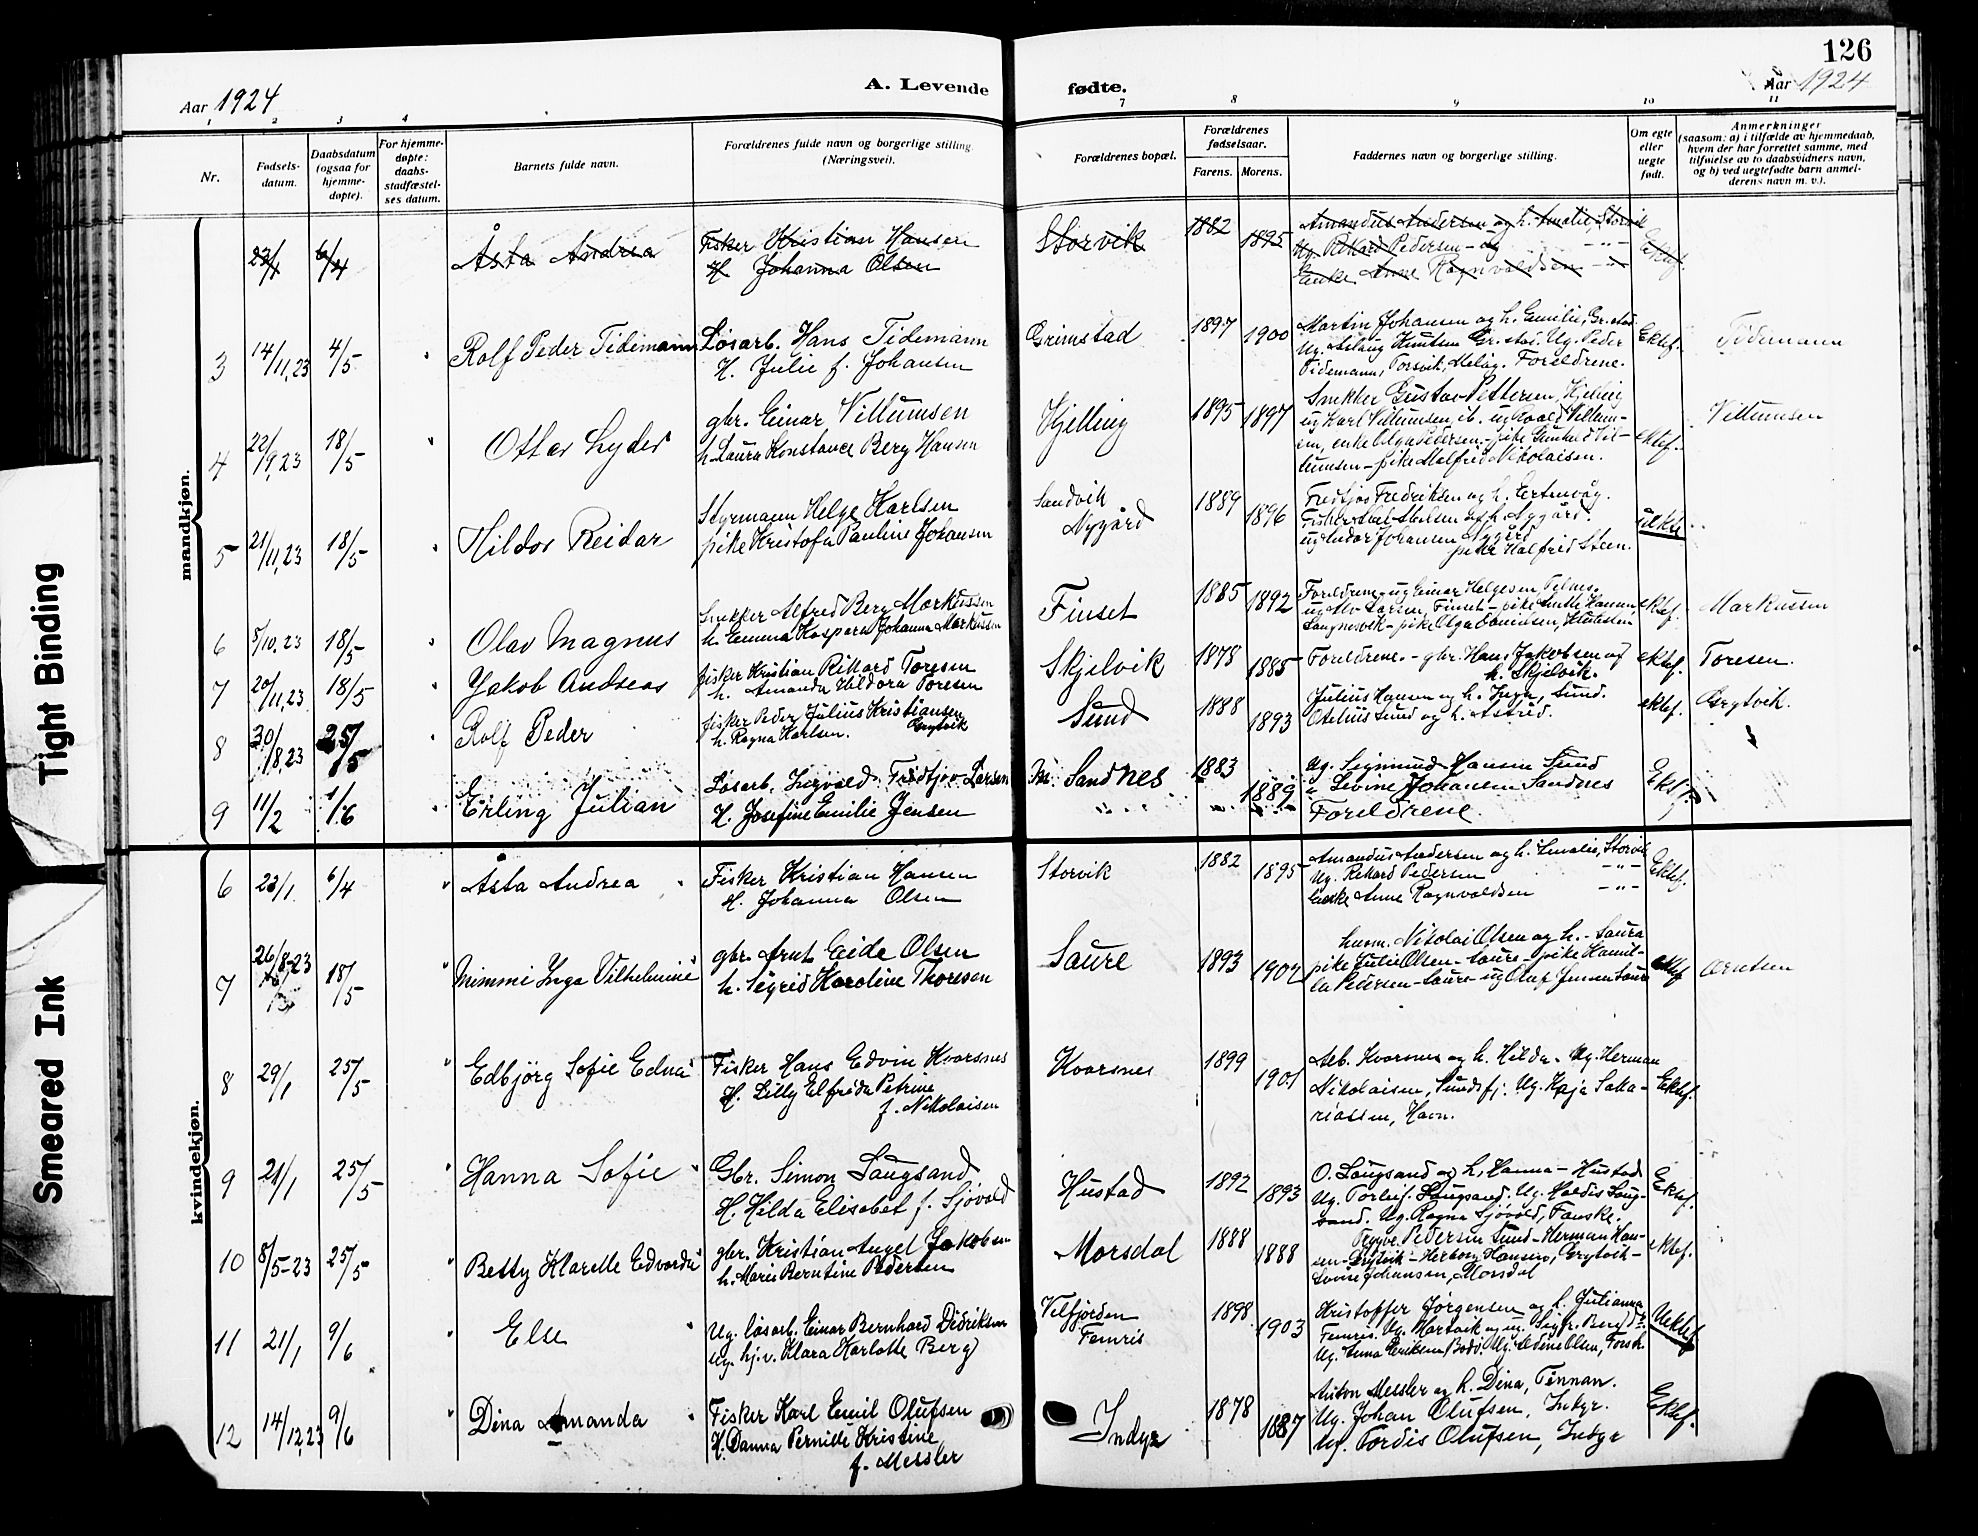 126
Aar 1924
A. Levende
fødte.
Aar 1924
1 2 3 4 7 8 9 10 11
Nr.
Fødsels-
datum.
Daabsdatum
(ogsaa for
hjemme-
døpte).
For hjemme-
døpte:
daabs-
stadfæstel-
ses datum.
Barnets fulde navn.
Forældrenes fulde navn og borgerlige stilling.
(Næringsvei).
Forældrenes bopæl.
Forældrenes
fødselsaar.
Farens. Morens.
Faddernes navn og borgerlige stilling.
Om egte
eller
uegte
født.
Anmerkninger
(saasom: a) i tilfælde av hjemmedaab,
hvem der har forrettet samme, med
tilføielse av to daabsvidners navn,
og b) ved uegtefødte barn anmel-
derens navn m. v.).
mandkjøn.
23/1 6/4 Åsta Andrea
Fisker Kristian Hansen
H Johanna Olsen
Storvik 1882 1895
Amandus Andersen og h. Amalie, Storvik
Ug. Rikard Pedersen - og
Enke Anne Ragnvaldsen
Ektef.
3 14/11,23 4/5 Rolf Peder Tidemann
Løsarb. Hans Tidemann
H. Julie f. Johansen
Grimstad 1897 1900
Martin Johansen og h. Emilie, Gr.stad
Ug. Aslaug Knutsen Gr.stad. Ug. Peder
Tidemann, Torsvik, Meløy. Foreldrene.
Ektef. Tidemann
4 22/9,23 18/5 Ottar Lyder
gbr. Einar Villumsen
h. Laura Konstance Berg Hansen
Kjelling 1895 1897
Snekker Gustav Pettersen, Kjelling
ug Karl Villumsen, ib. ug Roald Villum-
sen, enke Olga Pedersen - pike Gunhild Vil-
lumsen - pike Malfrid Nikolaisen.
ektef. Villumsen
5 21/11,23 18/5 Hildor Reidar
Styrmann Helge Karlsen
pike Kristofa Pauline Johansen
Sandvik
Nygård 1889 1896
Fredtjof Fredriksen og h. Ertenvåg.
ug Indor Johansen Nygård
pike Halfrid Steen.
uekte
6 5/10,23 18/5 Olav Magnus
Snekker Alfred Berg Markussen
h. Emma Kaspara Johanna Markussen
Finset 1885 1892
Foreldrene - ug Einar Helgesen, Telnes.
ektef. Markussen
7 20/11,23 18/5 Jakob Andreas
fisker Kristian Rikard Toresen
h. Amanda Hildora Toresen
Skjelvik 1878 1885
Foreldrene. - gbr. Hans Jakobsen og
h. Skjelvik.
ektef. Toresen.
8 30/8,23 25/5 Rolf Peder
fisker Peder Julius Kristiansen
Grytvik
h. Ragna Karlsen.
Sund 1888 1893
Julius Hansen og h. Inga, Sund.
Otelius Sund og h. Astrid.
ektef. Grytvik.
9 11/2 1/6 Erling Julian
Løsarb. Ingvald Fridtjov Larsen
H. Josefine Emilie Jensen
Sandnes 1883 1889
Ug. Sigmund Hansen Sund
" Levine Johansen Sandnes
Foreldrene.
Ektef.
kvindekjøn.
6 23/1 6/4 Åsta Andrea
Fisker Kristian Hansen
H. Johanna Olsen
Storvik 1882 1895
Amandus Andersen og h. Amalie, Storvik
Ug. Rikard Pedersen - " -
Enke Anne Ragnvaldsen - " -
Ektef.
7 26/8,23 18/5 Mimmi Inga Vilhelmine
gbr. Arnt Eide Olsen
h. Sigrid Karoline Thoresen
Saure 1893 1902
husm. Nikolai Olsen og h. - Saura
pike Julie Olsen - Saure - pike Hamil-
la Petersen - Saure - ug Oluf Jensen Saure
ektef Arntsen
8 29/1 25/5 Edbjörg Sofie Edna
Fisker Hans Edvin Kvarsnes
H. Lilly Elfrida Petrine
f. Nikolaisen
Kvarsnes 1899 1901
Alb. Kvarsnes og h. Hilda. Ug. Herman
Nikolaisen, Sundsfj. Ug. Kaja Saka-
riassen, Havn.
Ektef.
9 21/1 25/5 Hanna Sofie
Gbr. Simon Laugsand
H. Hilda Elisabet f. Sjøvold
Hustad 1892 1893
O. Laugsand og h. Hanna - Hustad
Ug. Torleif Laugsand. Ug. Haldis Laug-
sand. Ug. Ragna Sjøvold, Fauske.
Ektef.
10 8/5-23 25/5 Betty Klarelle Edvarda
gbr. Kristian Angel Jakobsen
h. Marie Berntine Pedersen
Morsdal 1888 1888
Trygve Pedersen Sund - Herman Han-
sen - Grytvik - Herborg Hansen, Grytvik -
Lovine Johansen, Morsdal
ektef.
11 21/1 9/6 Else
Ug. løsarb. Einar Bernhard Didriksen
Ug. hj.v. Klara Karlotte Berg)
Velfjorden
Femris 1898 1903
Kristoffer Jørgensen og h. Julianna
Ug. Anna Eriksen, Bodø. Ug. Edine Olsen, Forsk.
Uektef
12 14/12,23 9/6 Dina Amanda
Fisker Karl Emil Olufsen
H. Danna Pernille Kristine
f. Messler
Indyr 1878 1887
Anton Messler og h. Dina, Tennan.
Ug. Johan Olufsen, Indyr.
Ug. Tordis Olufsen, Indyr
Ektef.
Tight Binding
Smeared Ink